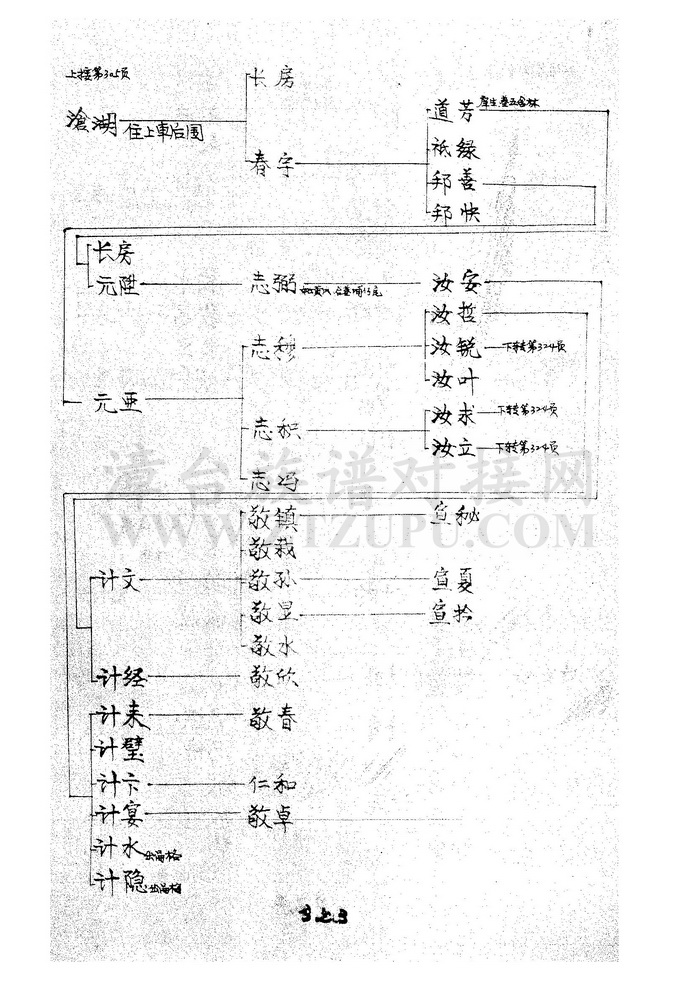 上接第305页
长房
沧湖 住上車后围
道芳
春宇
祗绿
邦善
邦快
长房
元陞 志弼 汝安
汝哲
志穆 汝锐 下转第324页
汝叶
元亚
志积 汝求 下转第324页
汝立 下转第324页
志冯
漳台族谱对接网
WWW.ZTZUPU.COM
敬镇 宣秘
敬栽
计文 敬孙 宣夏
敬昱 宣拾
敬水
计经 敬欣
计来 敬春
计璧
计卞 仁和
计宴 敬卓
计水
计隐
323